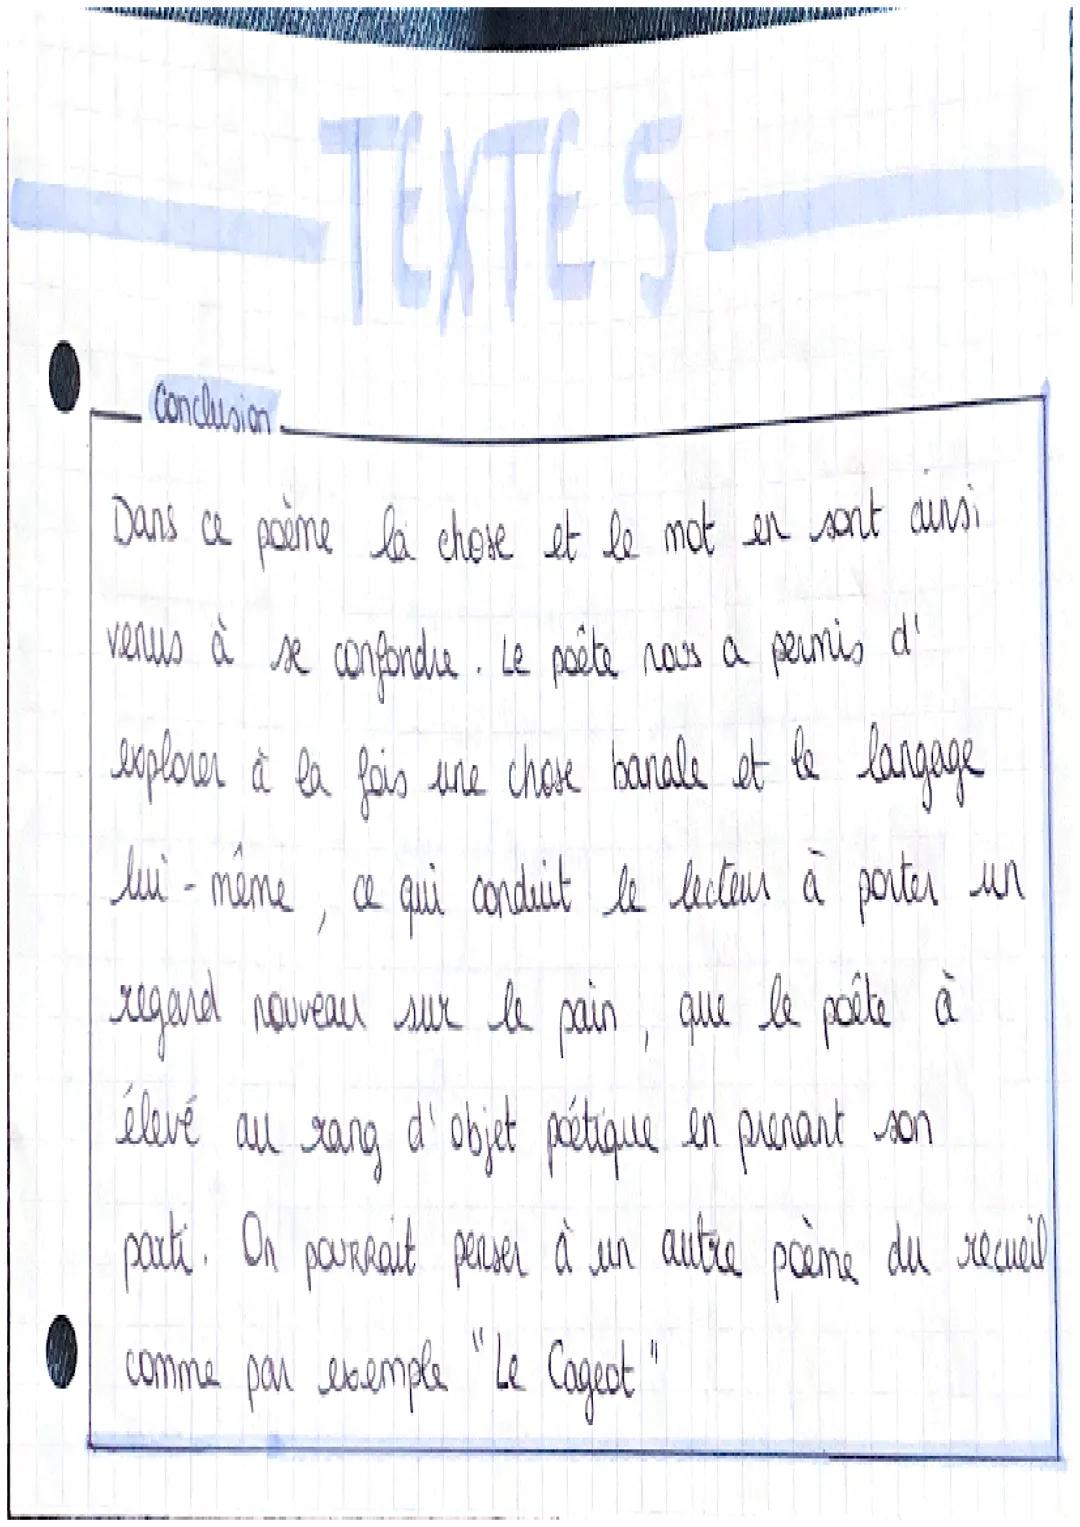 TEXTE 5
Conclusion
Dans ce poème la chose et le mot en sont ainsi
venus à se confondre. Le poête nous a permis d'
explorer à la fois une chose banale et le langage
lui-même, ce qui conduit le lecteur à porter un
regard nouveau sur le pain, que le poête à
élevé au rang d'objet poétique en prenant son
parti. On pourrait penser à un autre poème du recueil
comme par exemple "Le Cageot"